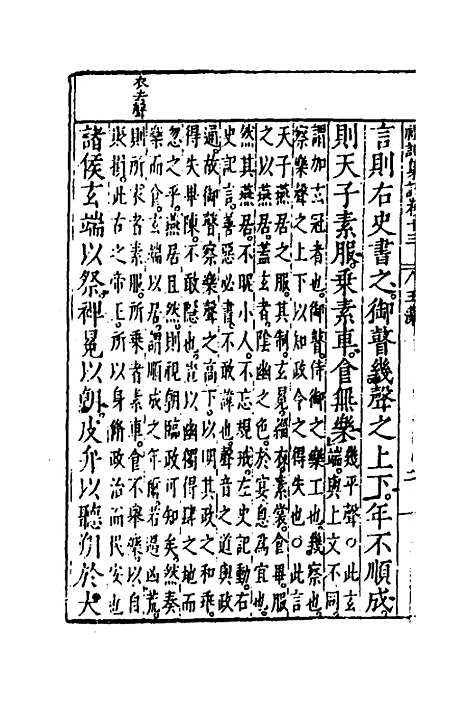 言則右史書之御瞽幾聲之上下年不順成
則天子素服乘素車食無樂
幾平聲○此玄
端與上文不同
謂加玄冠者也侍御之樂工也幾察也
察樂聲之上下以知政令之得失也○此言
天子燕居之服其制玄冕
素裳食畢服
之以燕居蓋玄者陰幽之色於宴息爲宜也
然其燕居不暱小人不忘規戒左史記動右
史記言善惡必書不敢諱也聲音之道與政
通故御瞽察樂聲之高下以明其政之和乖
得失陳不敢隱也豈以幽獨得肆之地而
忽之乎燕居且然則視朝臨政可知矣然奏
樂而食玄端以居謂順成之年所若遇凶荒
則所求者素服所乘者素車食不舉樂以自
貶損此古之帝王所以身脩政治而民安也
諸侯玄端以祭裨冕以朝皮弁以聽朔於大
衣去聲